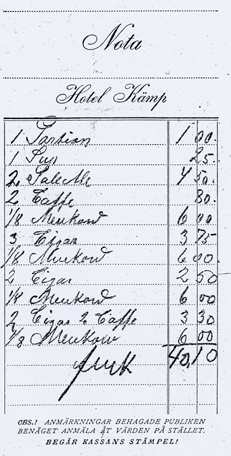 Nota
Hotel Kämp
1 1 00.
1 Sup 25.
2 4 50.
2 Caffe 80.
1/2 6 00
3 Cigar 3 75
1/2 6 00
2 Cigar 2 50
1/2 6 00
2 Cigar 2 Caffe 3 30
1/2 6 00
40,10
OBS.! ANMÄRKNINGAR BEHAGADE PUBLIKEN
BENÄGET ANMÄLA ÅT VÄRDEN PÅ STÄLLET.
BEGÄR KASSANS STÄMPEL!